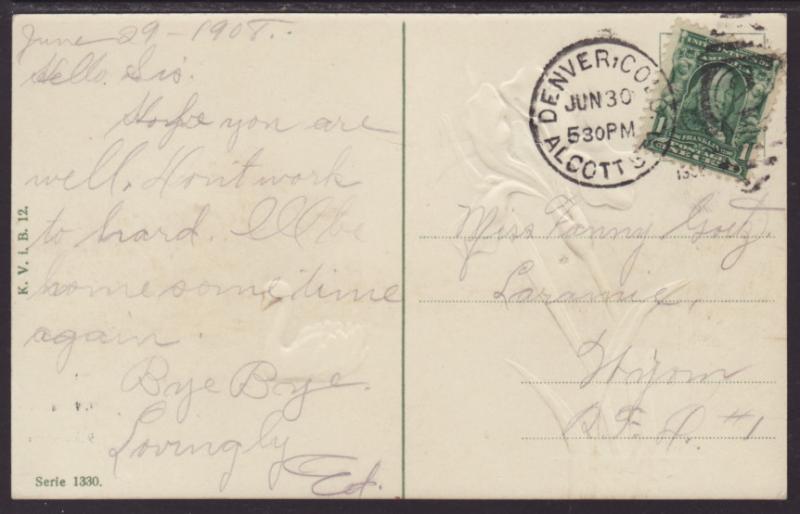 June 29 - 1908.
Hello Sis.
Hope you are
well. Dont work
to hard. Ill be
home sometime
again.
Bye Bye.
Lovingly
Ed.
K. V. i. B. 12.
Serie 1330.
DENVER, COLO.
JUN 30
530 PM
ALCOTT S
FRANKLIN
POSTAGE
1 1
Miss Fanny Goetz.
Laramie,
Wyom
R. F. D. #1